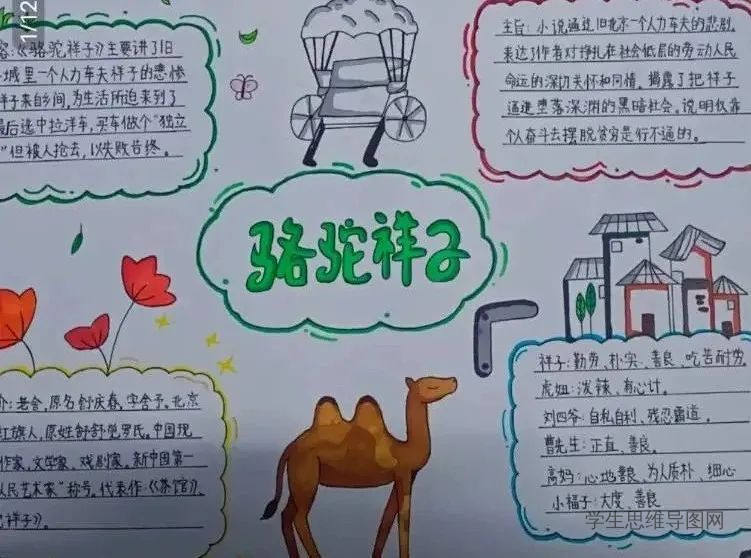 1/12
容:《骆驼祥子》主要讲了旧
城里一个人力车夫祥子的悲惨
祥子来自乡间,为生活所迫来到了
最后选中拉洋车,买车做个“独立
”但被人抢去,以失败告终。
主旨:小说通过旧北京一个人力车夫的悲剧,
表达了作者对挣扎在社会低层的劳动人民
命运的深切关怀和同情。揭露了把祥子
逼进堕落深渊的黑暗社会。说明仅靠
个人奋斗去摆脱贫穷是行不通的。
骆驼祥子
介:老舍,原名舒庆春,字舍予。北京
红旗人,原姓舒舒觉罗氏。中国现
作家、文学家、戏剧家。新中国第一
人民艺术家”称号。代表作:《茶馆》、
祥子》。
祥子:勤劳、朴实、善良、吃苦耐劳
虎妞:泼辣、有心计。
刘四爷:自私自利、残忍霸道。
曹先生:正直、善良。
高妈:心地善良、为人质朴、细心
小福子:大度、善良
学生思维导图网